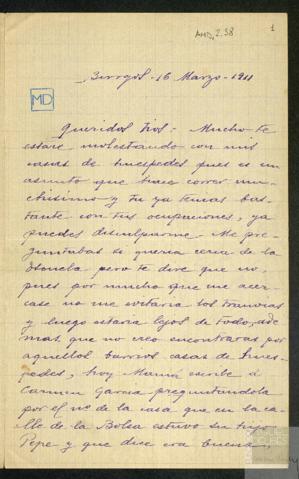 AMD, 2.38
1
Borrjol - 16 Marzo - 1911
MD
Queridos tios = Mucho te
estaré molestando con mis
casas de huespedes pues es un
asunto que hace correr mu-
chisimo y tu ya tenias bas-
tante con tus ocupaciones, ya
puedes disculparme. Me pre-
guntabas si queria cerca de la
Escuela, pero te dire que no,
pues por mucho que me acer-
case no me evitaria los tranvias
y luego estaria lejos de todo, ade
mas, que no creo encontraras por
aquellos barrios casas de hues-
pedes, hoy Mamá escribe á
Carmen Garcia preguntandola
por el nº de la casa que en la ca-
lle de la Bolsa estuvo su hijo
Pepe y que dice era buena,